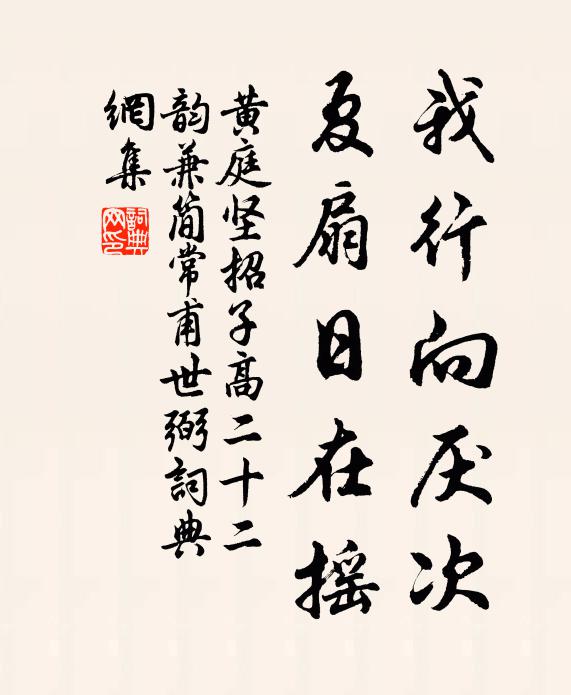 我行向厌次
夏扇日在摇
黄庭坚招子高二十二
韵兼简常甫世弼詞典
網集
詞典网印